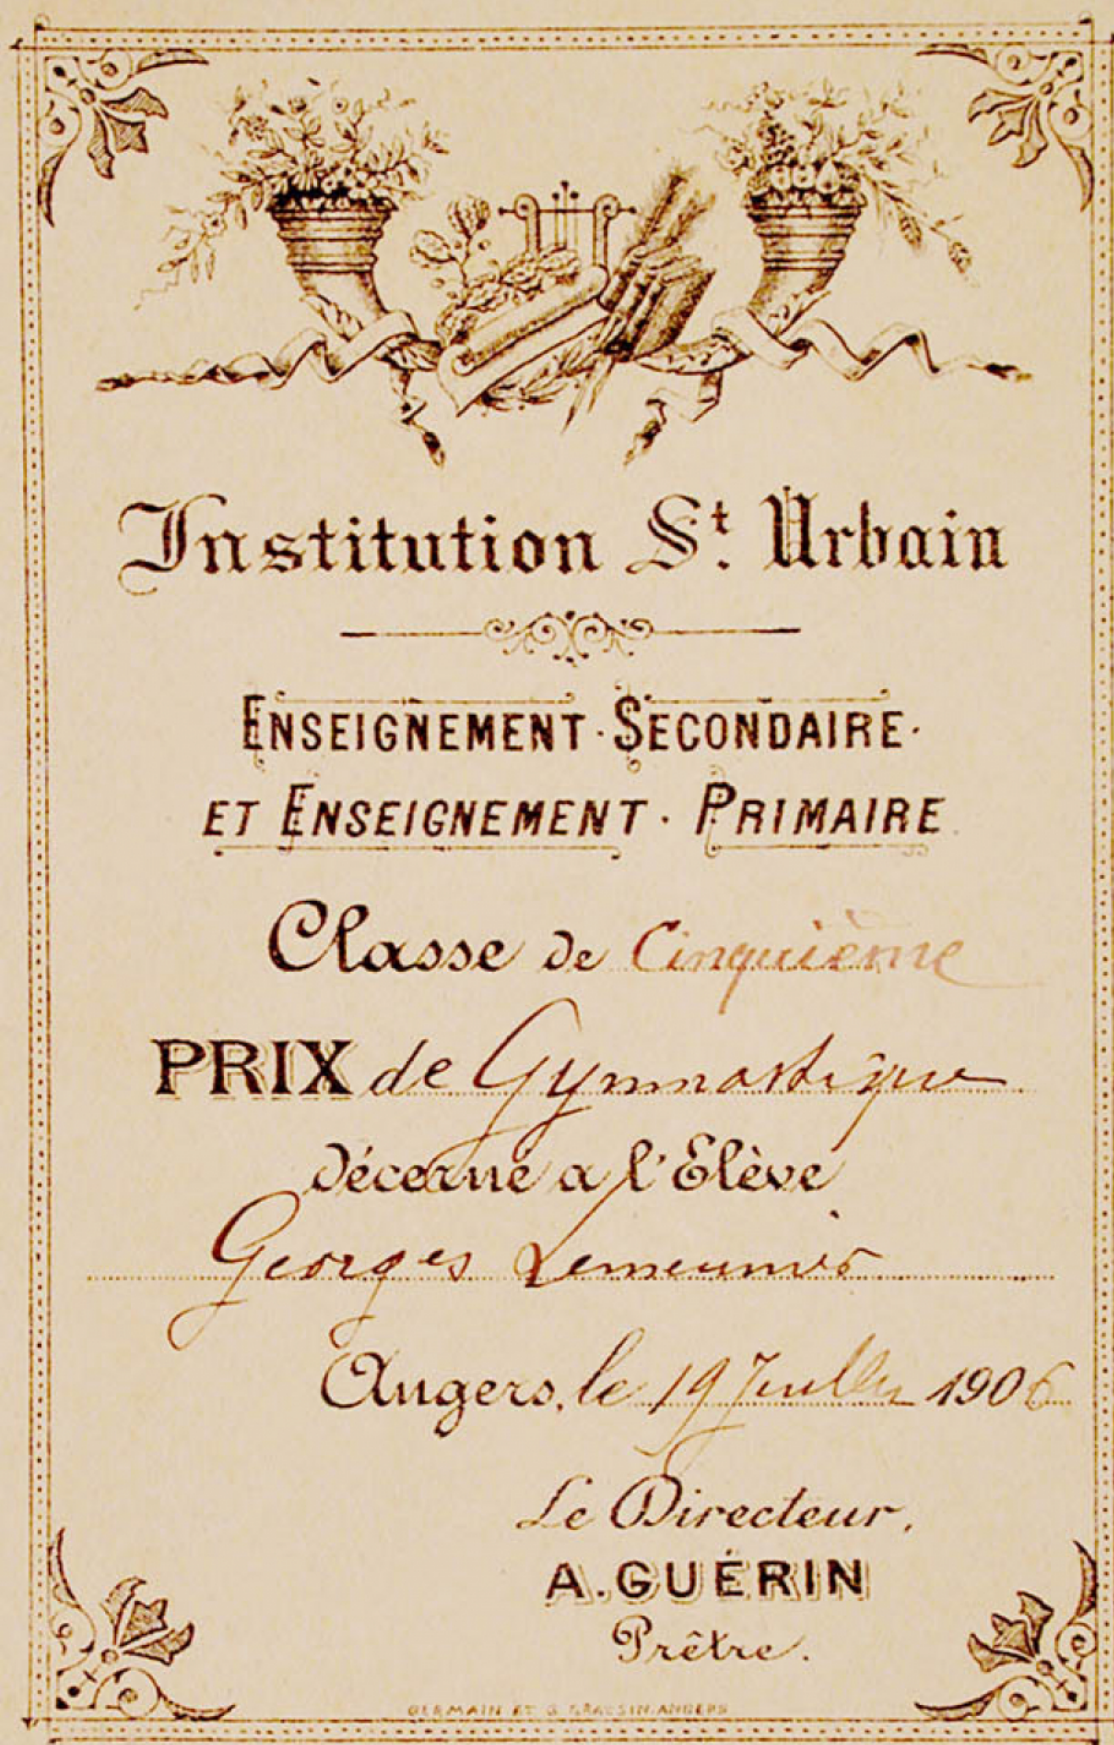 Institution St. Urbain
ENSEIGNEMENT · SECONDAIRE ·
ET ENSEIGNEMENT · PRIMAIRE
Classe de Cinquième
PRIX de Gymnastique
décerné a l'Elève
Georges Lemeunier
Angers, le 19 Juillet 1906
Le Directeur,
A. GUÉRIN
Prêtre.
GERMAIN ET G. GRASSIN. ANGERS